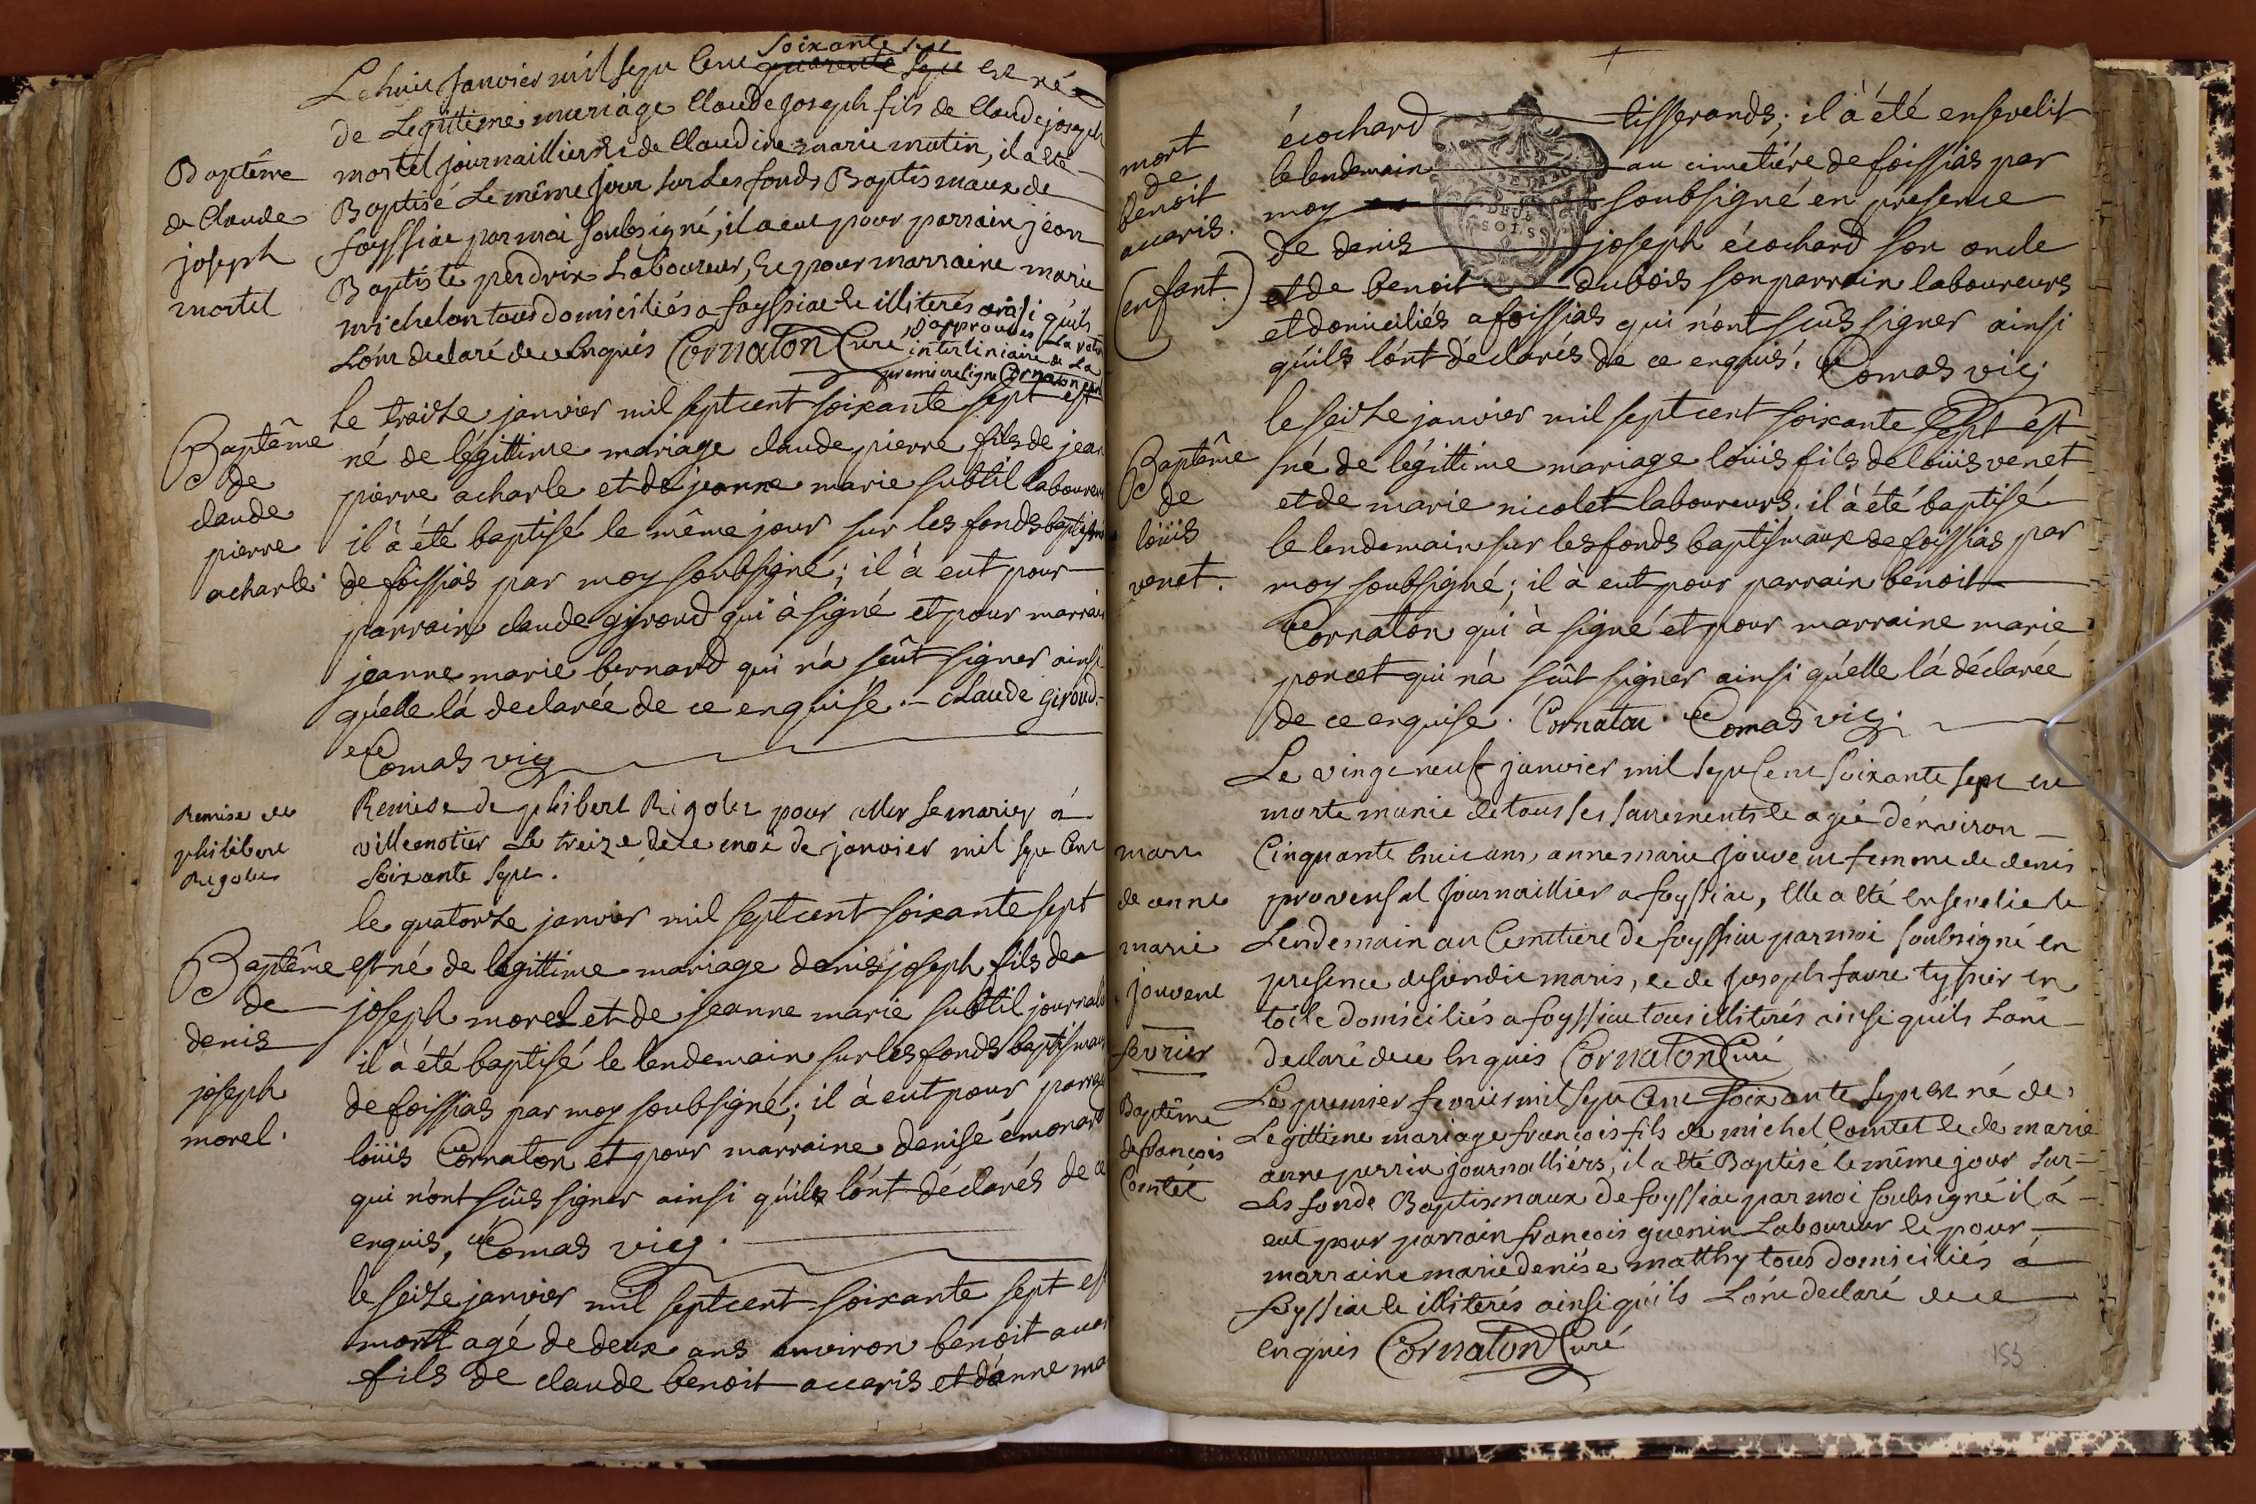 Le huit Janvier mil sept Cent quarente sept est né
soixante sept
de Legittime mariage Claude Joseph fils de Claude joseph
mortel journaillier & de Claudine marie matin, il a eté
Baptisé Le même jour sur Les fonds Baptismaux de
foyssiac par moi soubsigné, il a eut pour parrain jean
Baptiste perdrix Laboureur, & pour marraine marie
michelon tous domiciliés a foyssiac & illiterés ainsi qu'ils
L'ont declaré de ce enquis Cornaton Curé
j'approuves La note
interliniaire de La
premiere ligne Cornaton curé
Baptême
de Claude
joseph
mortel
le traize janvier mil sept cent soixante sept est
né de légittime mariage claude pierre fils de jean
pierre acharle et de jeanne marie subtil laboureurs
il à été baptisé le même jour sur les fonds baptismaux
de foissias par moy soubsigné; il à eut pour
parrain claude gyroud qui à signé et pour marraine
jeanne marie bernard qui n'a sçût signer ainsi
qu'elle l'a declarée de ce enquise. - claude Giroud -
Comas vic
Baptême
de
claude
pierre
acharle
Remise de philibert Rigolet pour aller se marier à
villemotier Le treize de ce mois de janvier mil sept Cent
soixante sept.
Remise de
philibert
Rigolet
le quatorze janvier mil sept cent soixante sept
est né de légittime mariage denis joseph fils de
joseph morel et de jeanne marie subtil journal
il à été baptisé le lendemain sur les fonds baptismaux
de foissias par moy soubsigné; il à eut pour parrain
loüis Cornaton et pour marraine denise émonard
qui n'ont sçûs signer ainsi qu'ils l'ont déclarés de ce
enquis, Comas vic.
Baptême
de
denis
joseph
morel.
le seize janvier mil sept cent soixante sept est
mort agé de deux ans environ benoit accaris
fils de claude benoit accaris et d'anne ma
écochard tisserands; il à été ensevelit
le lendemain au cimetiére de foissias par
moy soubsigné en présence
de denis joseph écochard son oncle
et de benoit dubois son parrain laboureurs
et domiciliés a foissias qui n'ont sçûs signer ainsi
qu'ils l'ont déclarés de ce enquis. Comas vic
mort
de
benoit
accaris.
(enfant.)
le seize janvier mil sept cent soixante sept est
né de légittime mariage loüis fils de loüis venet
et de marie nicolet laboureurs. il à été baptisé
le lendemain sur les fonds baptismaux de foissias par
moy soubsigné; il à eut pour parrain benoit
Cornaton qui à signé et pour marraine marie
poncet qui n'à sçût signer ainsi qu'elle l'à déclarée
de ce enquise. Cornaton. Comas vic.
Baptême
de
loüis
venet.
Le vingt neuf janvier mil sept Cent soixante sept est
morte munie de tous ses sacrements & agée d'environ
Cinquante huit ans, anne marie Jouvent femme de denis
provensal Journaillier a foyssiac, Elle a eté Ensevelie le
Lendemain au Cemitiere de foyssiac par moi soubsigné en
presence de sondit maris, & de Joseph favre tyssier en
toile domiciliés a foyssiac tous illiterés ainsi qu'ils L'ont
declaré de ce Enquis Cornaton Curé
mort
de anne
marie
jouvent
fevrier
Le premier fevrier mil sept Cent soixante sept est né de
Legittime mariage francois fils de michel Comtet & de marie
anne perrin journalliérs, il a eté Baptisé le même jour sur
Les fonds Baptismaux de foyssiac par moi soubsigné il à
eut pour parrain francois guenin Laboureur & pour
marraine marie denise matthy tous domiciliés à
foyssiac & illiterés ainsi qu'ils L'ont declaré de ce
enquis Cornaton Curé
Baptême
de francois
Comtet
153